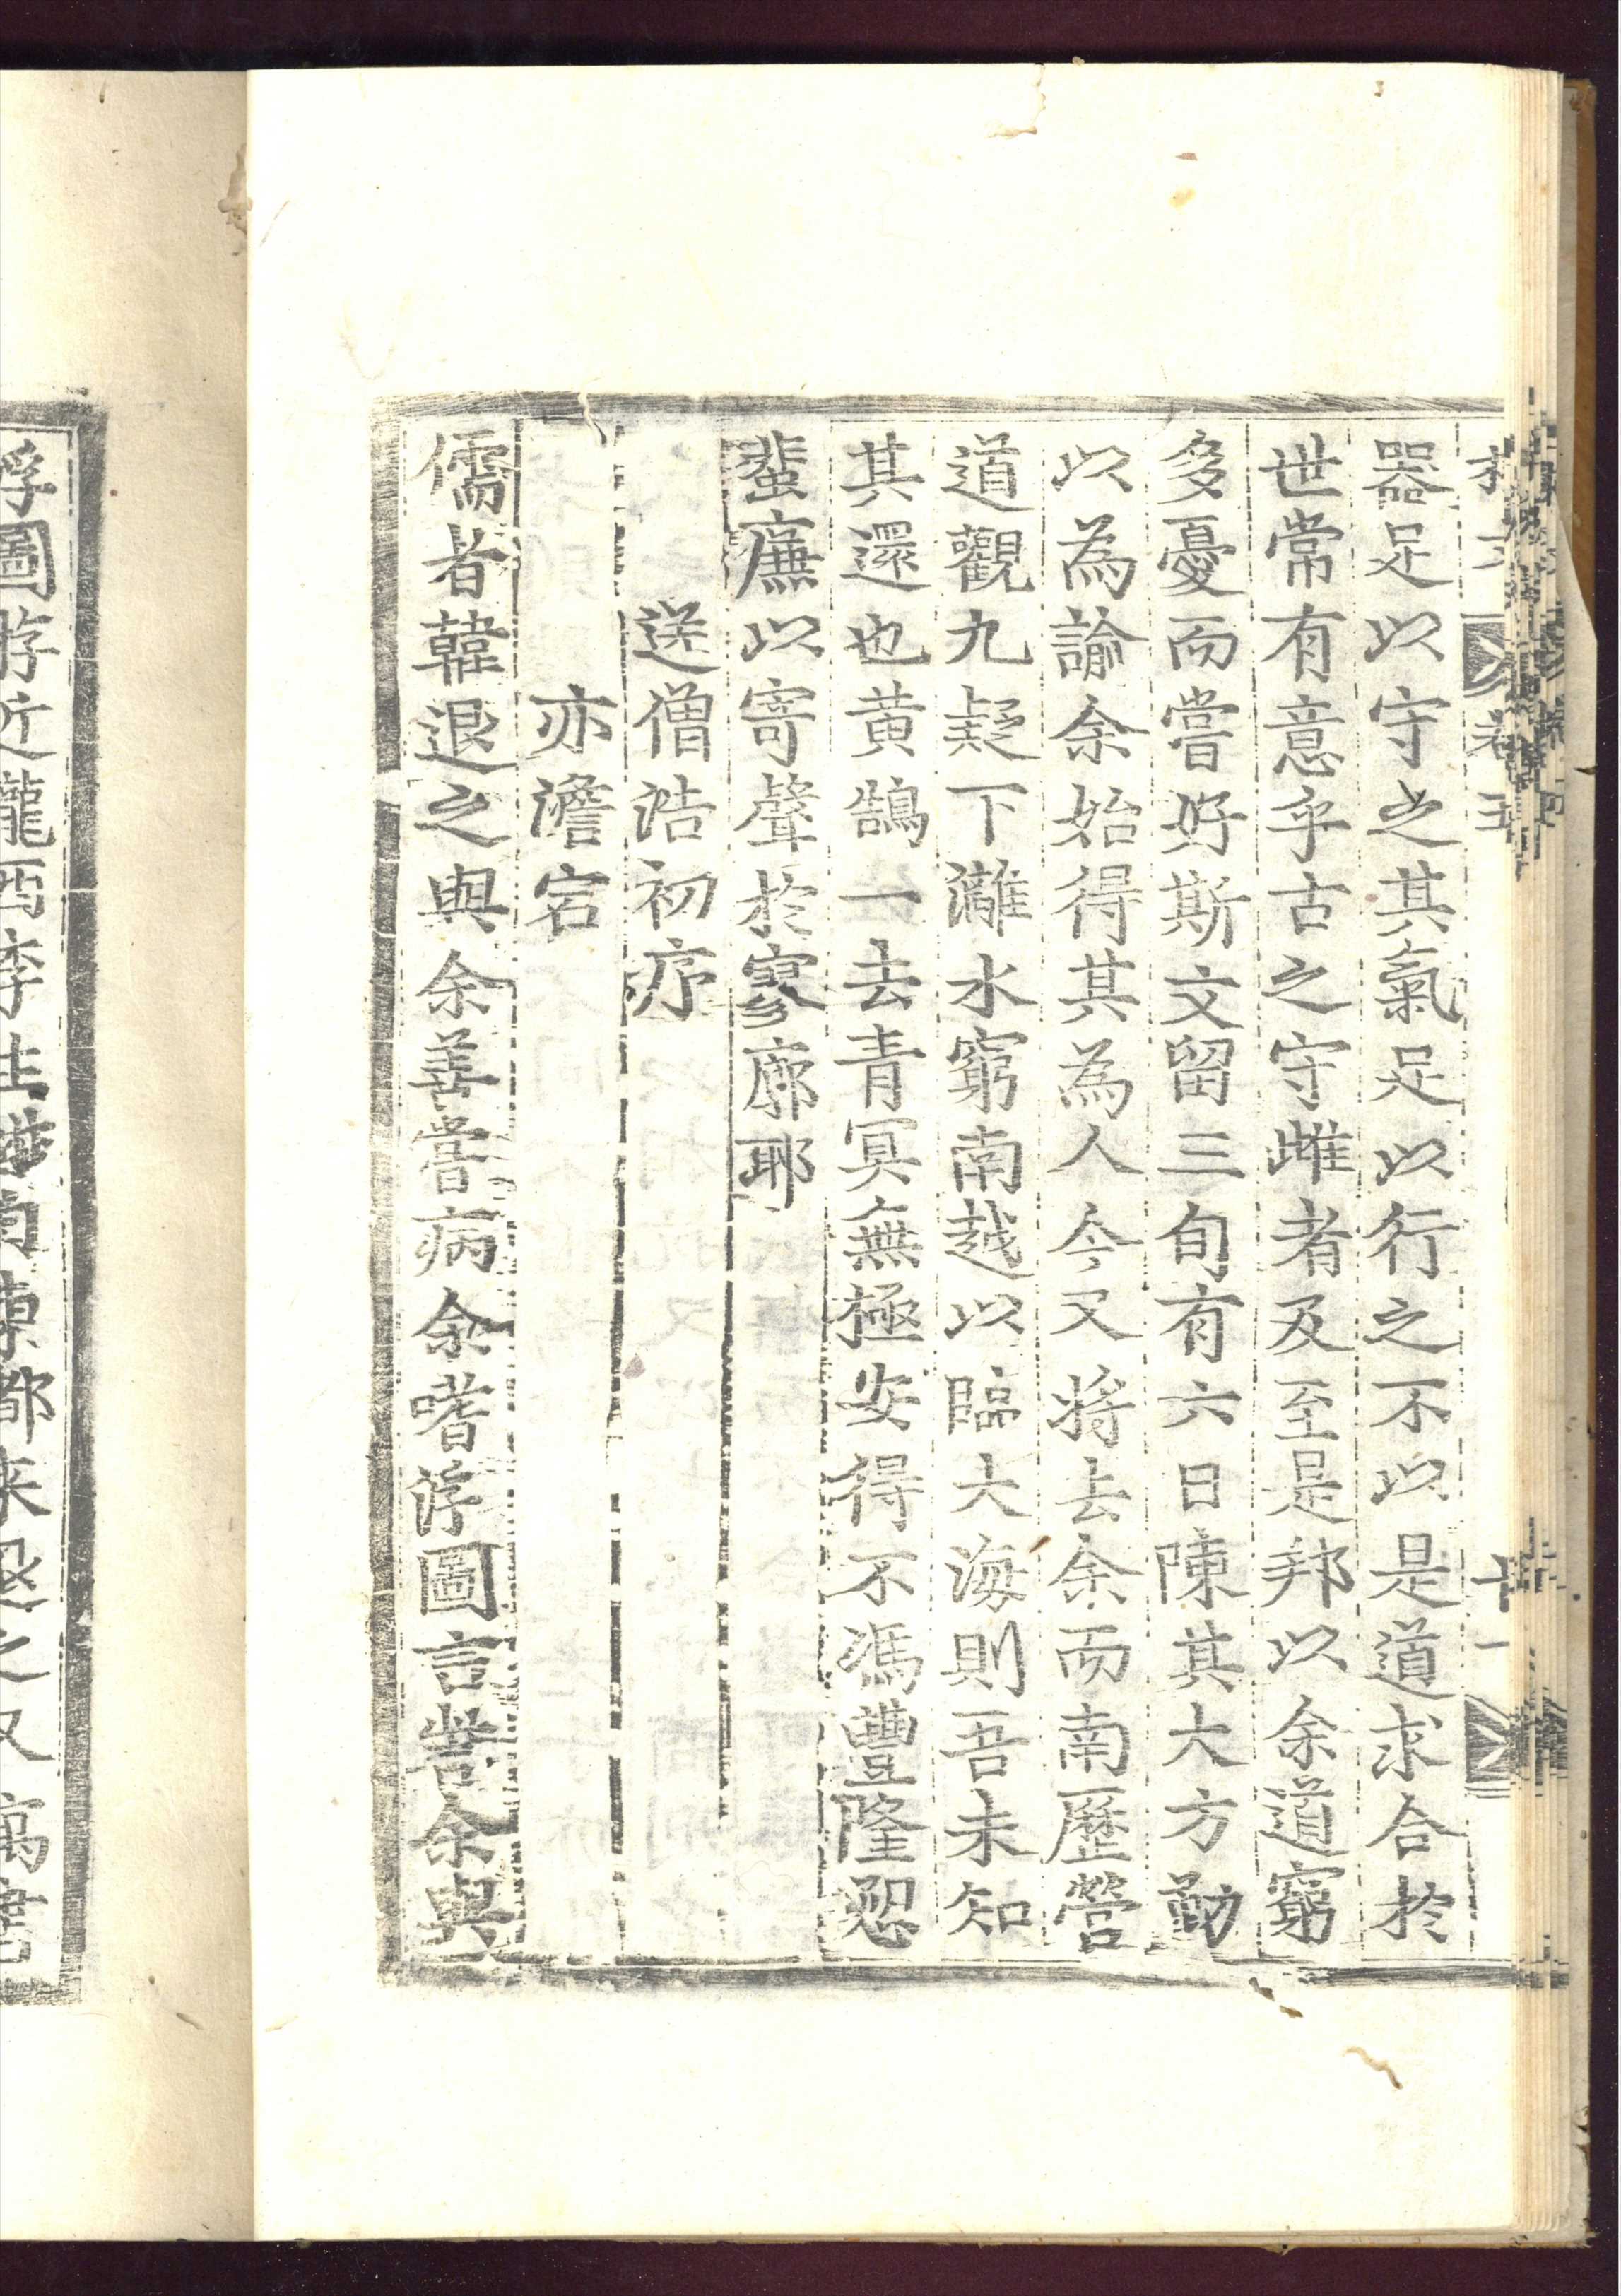 器足以守之其氣足以行之不以是道求合於
世常有意乎古之守雌者及至是邦以余道窮
多憂而嘗好斯文留三旬有六日陳其大方勤
以為諭余始得其為人今又將去余而南歷營
道觀九疑下灕水窮南越以臨大海則吾未知
其還也黃鵠一去青冥無極安得不馮豐隆愬
蜚廉以寄聲於寥廓耶
送僧浩初亦
亦澹宕
儒者韓退之與余善嘗病余嗜浮圖言訾余與
浮圖游近隴西李生礎自東都來退之又寓書